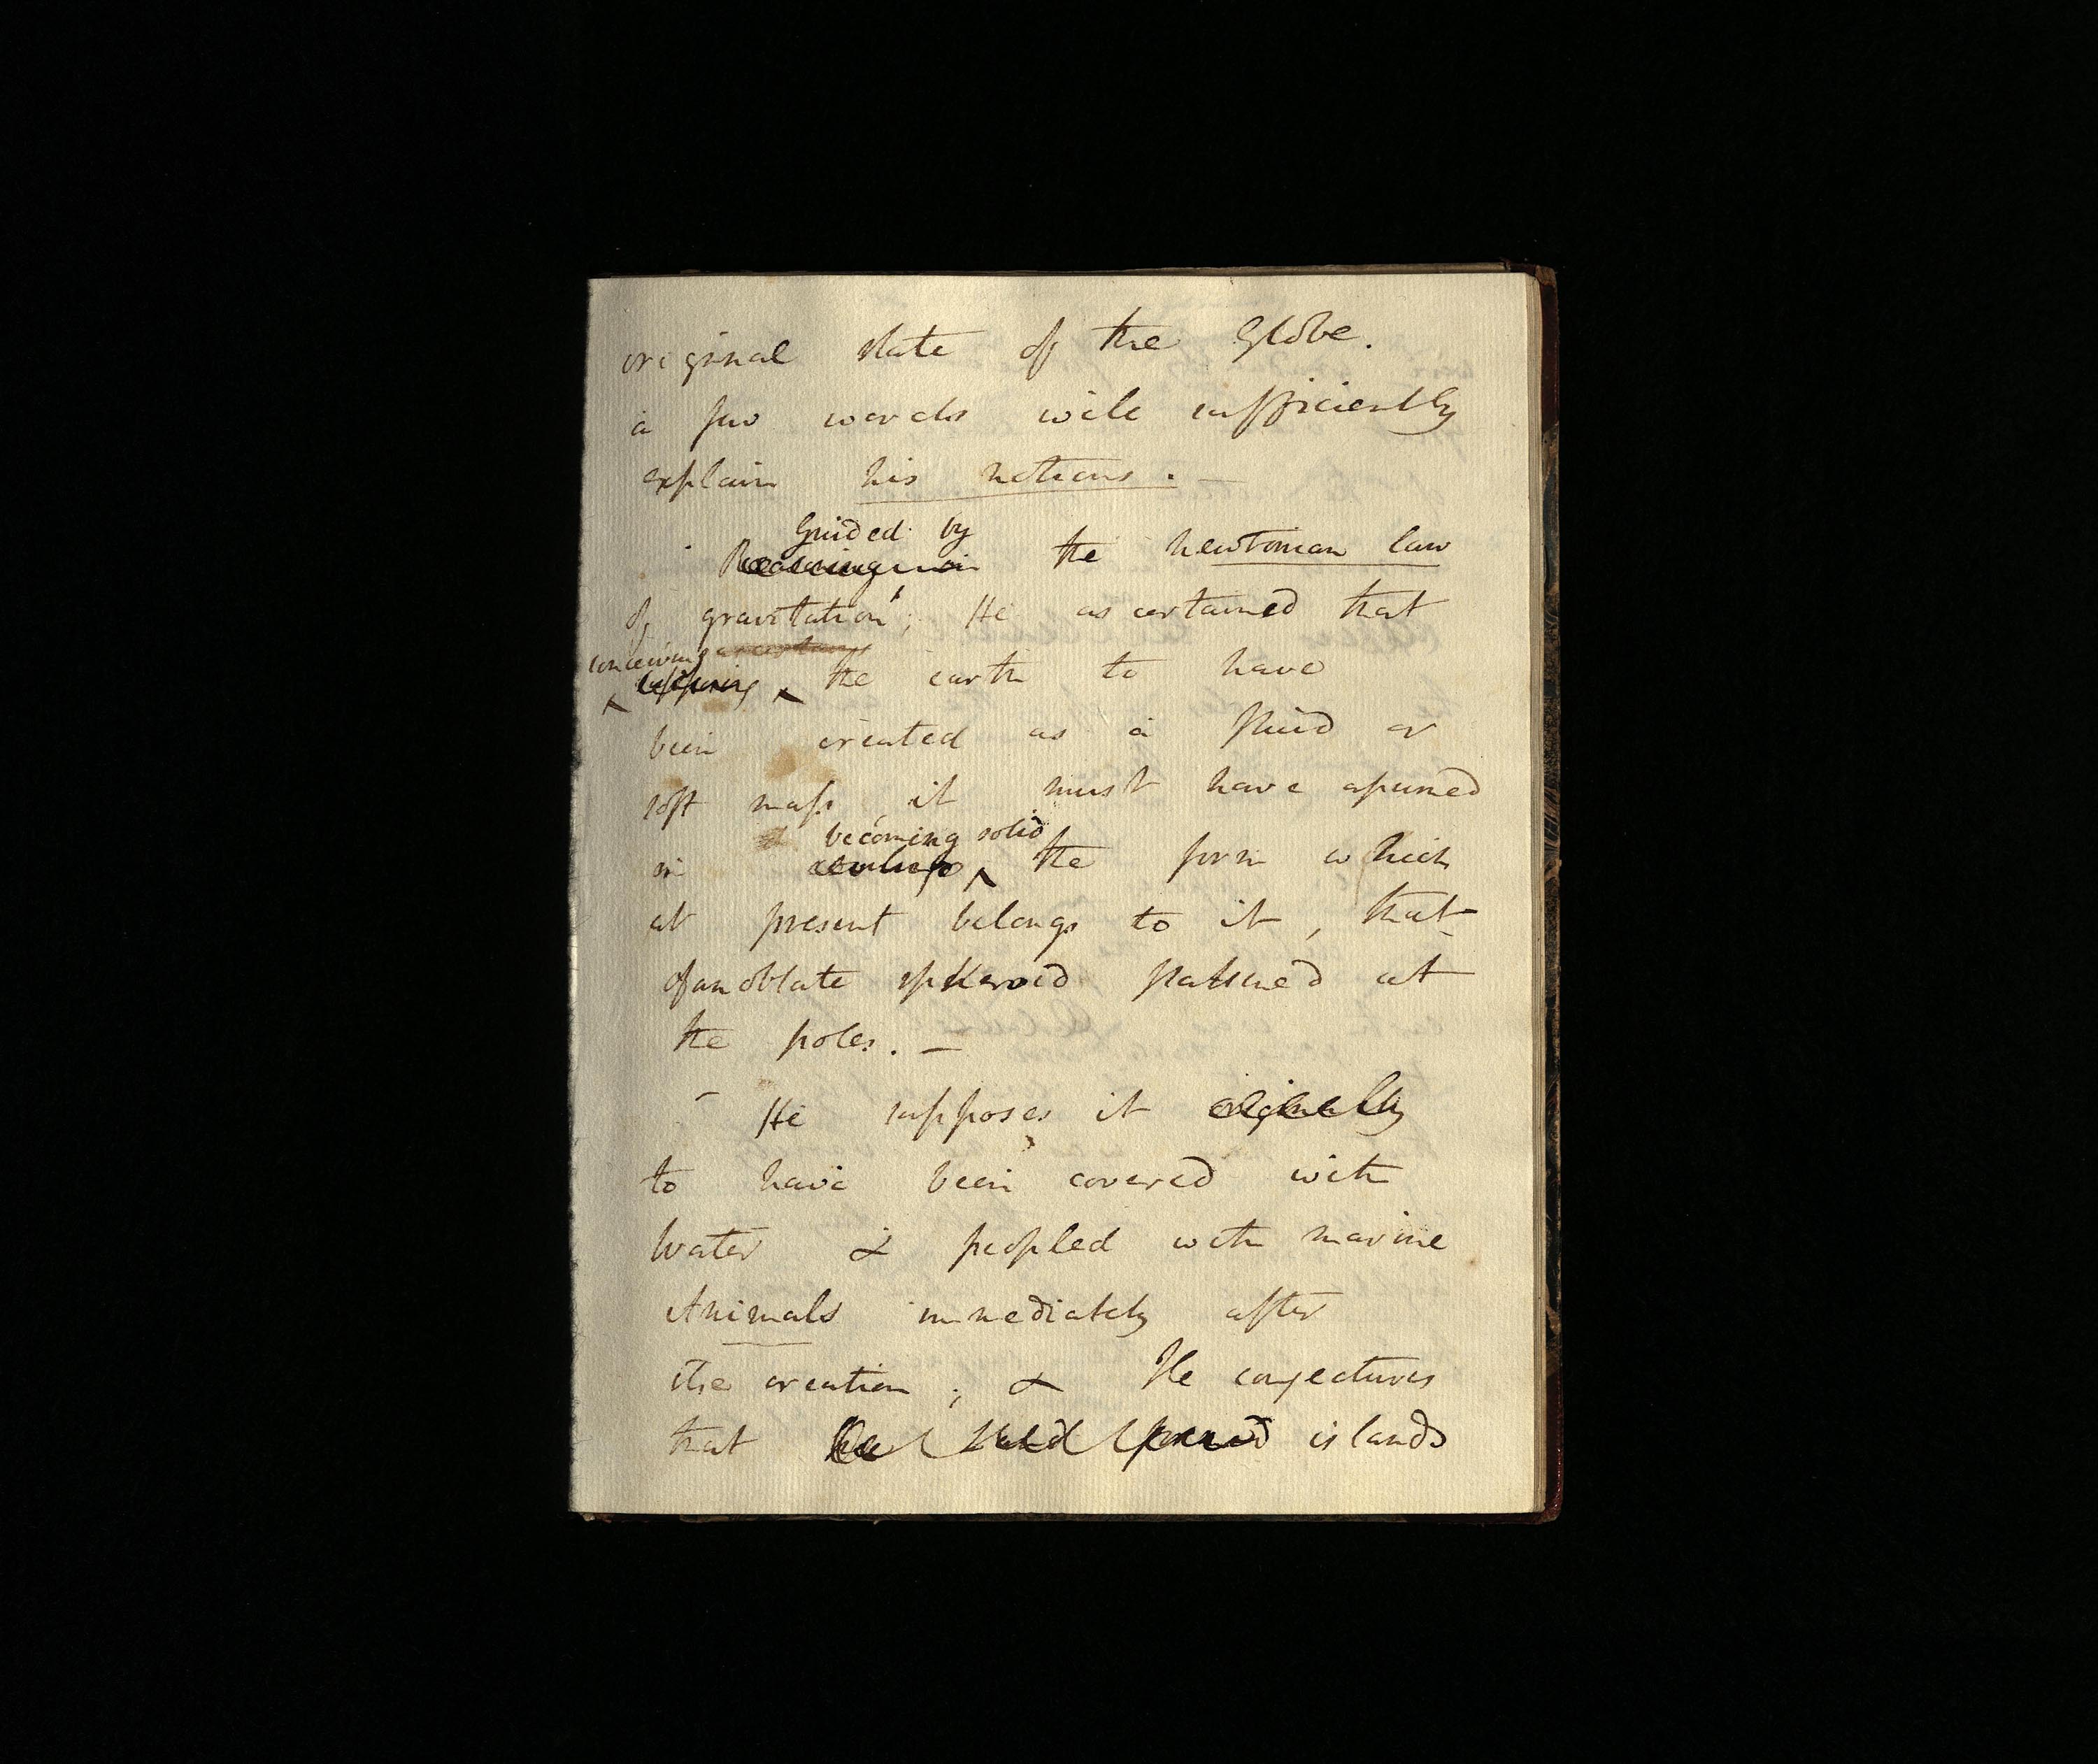 original state of the Globe.
a few words will sufficiently
explain his notions. —
Guided by
Reasoning on the newtonian law
of gravitation; He ascertained that
conceiving
supposing the earth to have
been created as a fluid or
soft mass it must have assumed
becoming solid
in the form which
at present belongs to it, that
of an oblate spheroid flattened at
the poles. —
— He supposes it originally
to have been covered with
Water & peopled with marine
Animals immediately after
its creation; & He conjectures
that islands